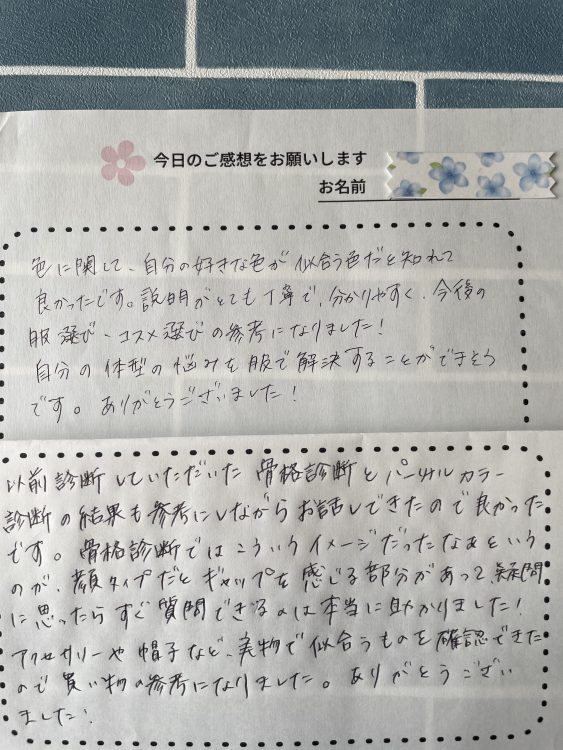 今日のご感想をお願いします
お名前
色に関して、自分の好きな色が似合う色だと知れて
良かったです。説明がとても丁寧で、分かりやすく、今後の
服選び、コスメ選びの参考になりました!
自分の体型の悩みを服で解決することができそう
です。ありがとうございました!
以前診断していただいた骨格診断とパーソナルカラー
診断の結果も参考にしながらお話しできたので良かった
です。骨格診断ではこういうイメージだったなぁという
のが、顔タイプだとギャップを感じる部分があって、疑問
に思ったらすぐ質問できるのは本当に助かりました!
アクセサリーや帽子など、実物で似合うものを確認できた
ので買い物の参考になりました。ありがとうござい
ました!